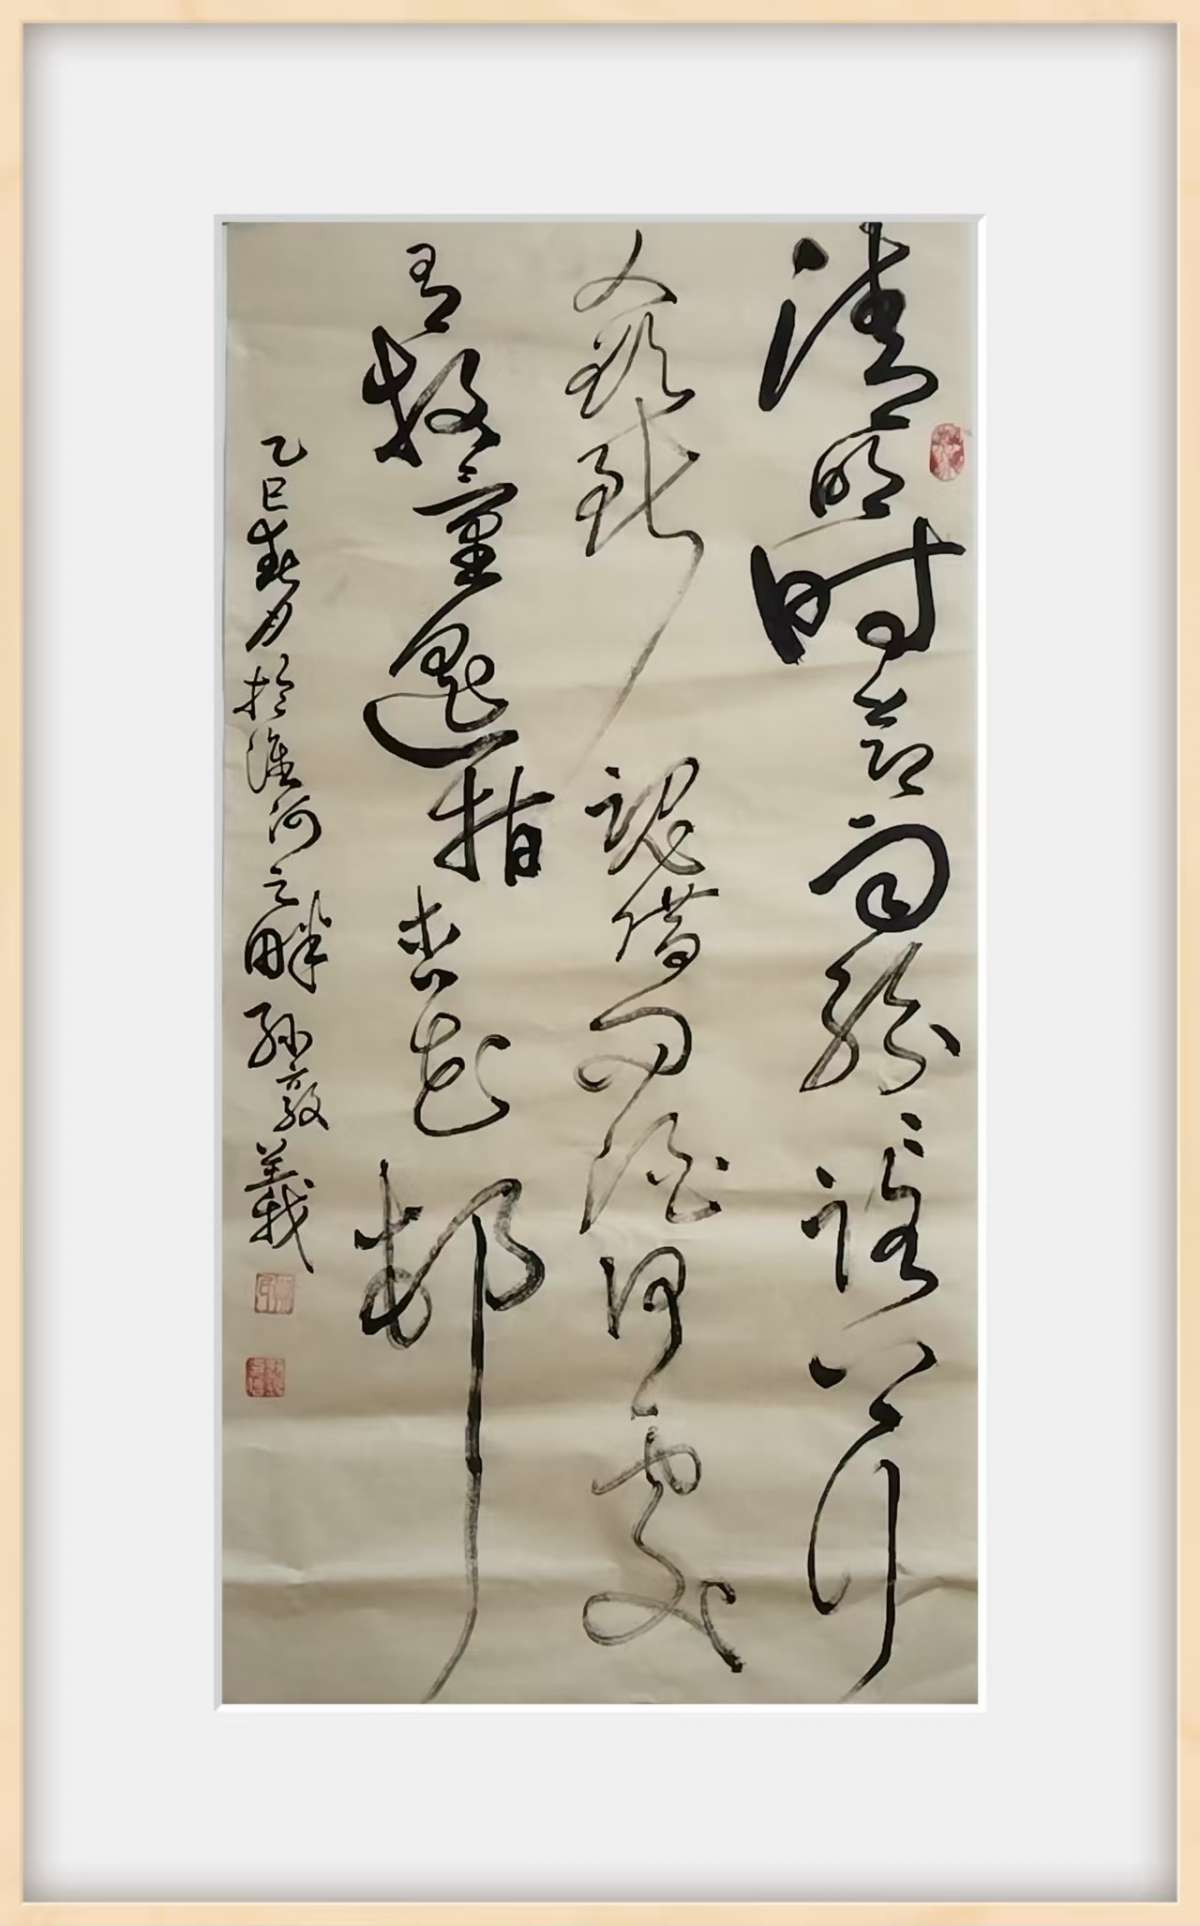 清明时节雨纷纷路上行
人欲断魂借问酒何处
有牧童遥指杏花邨
乙巳春月於淮河之畔孙敦義